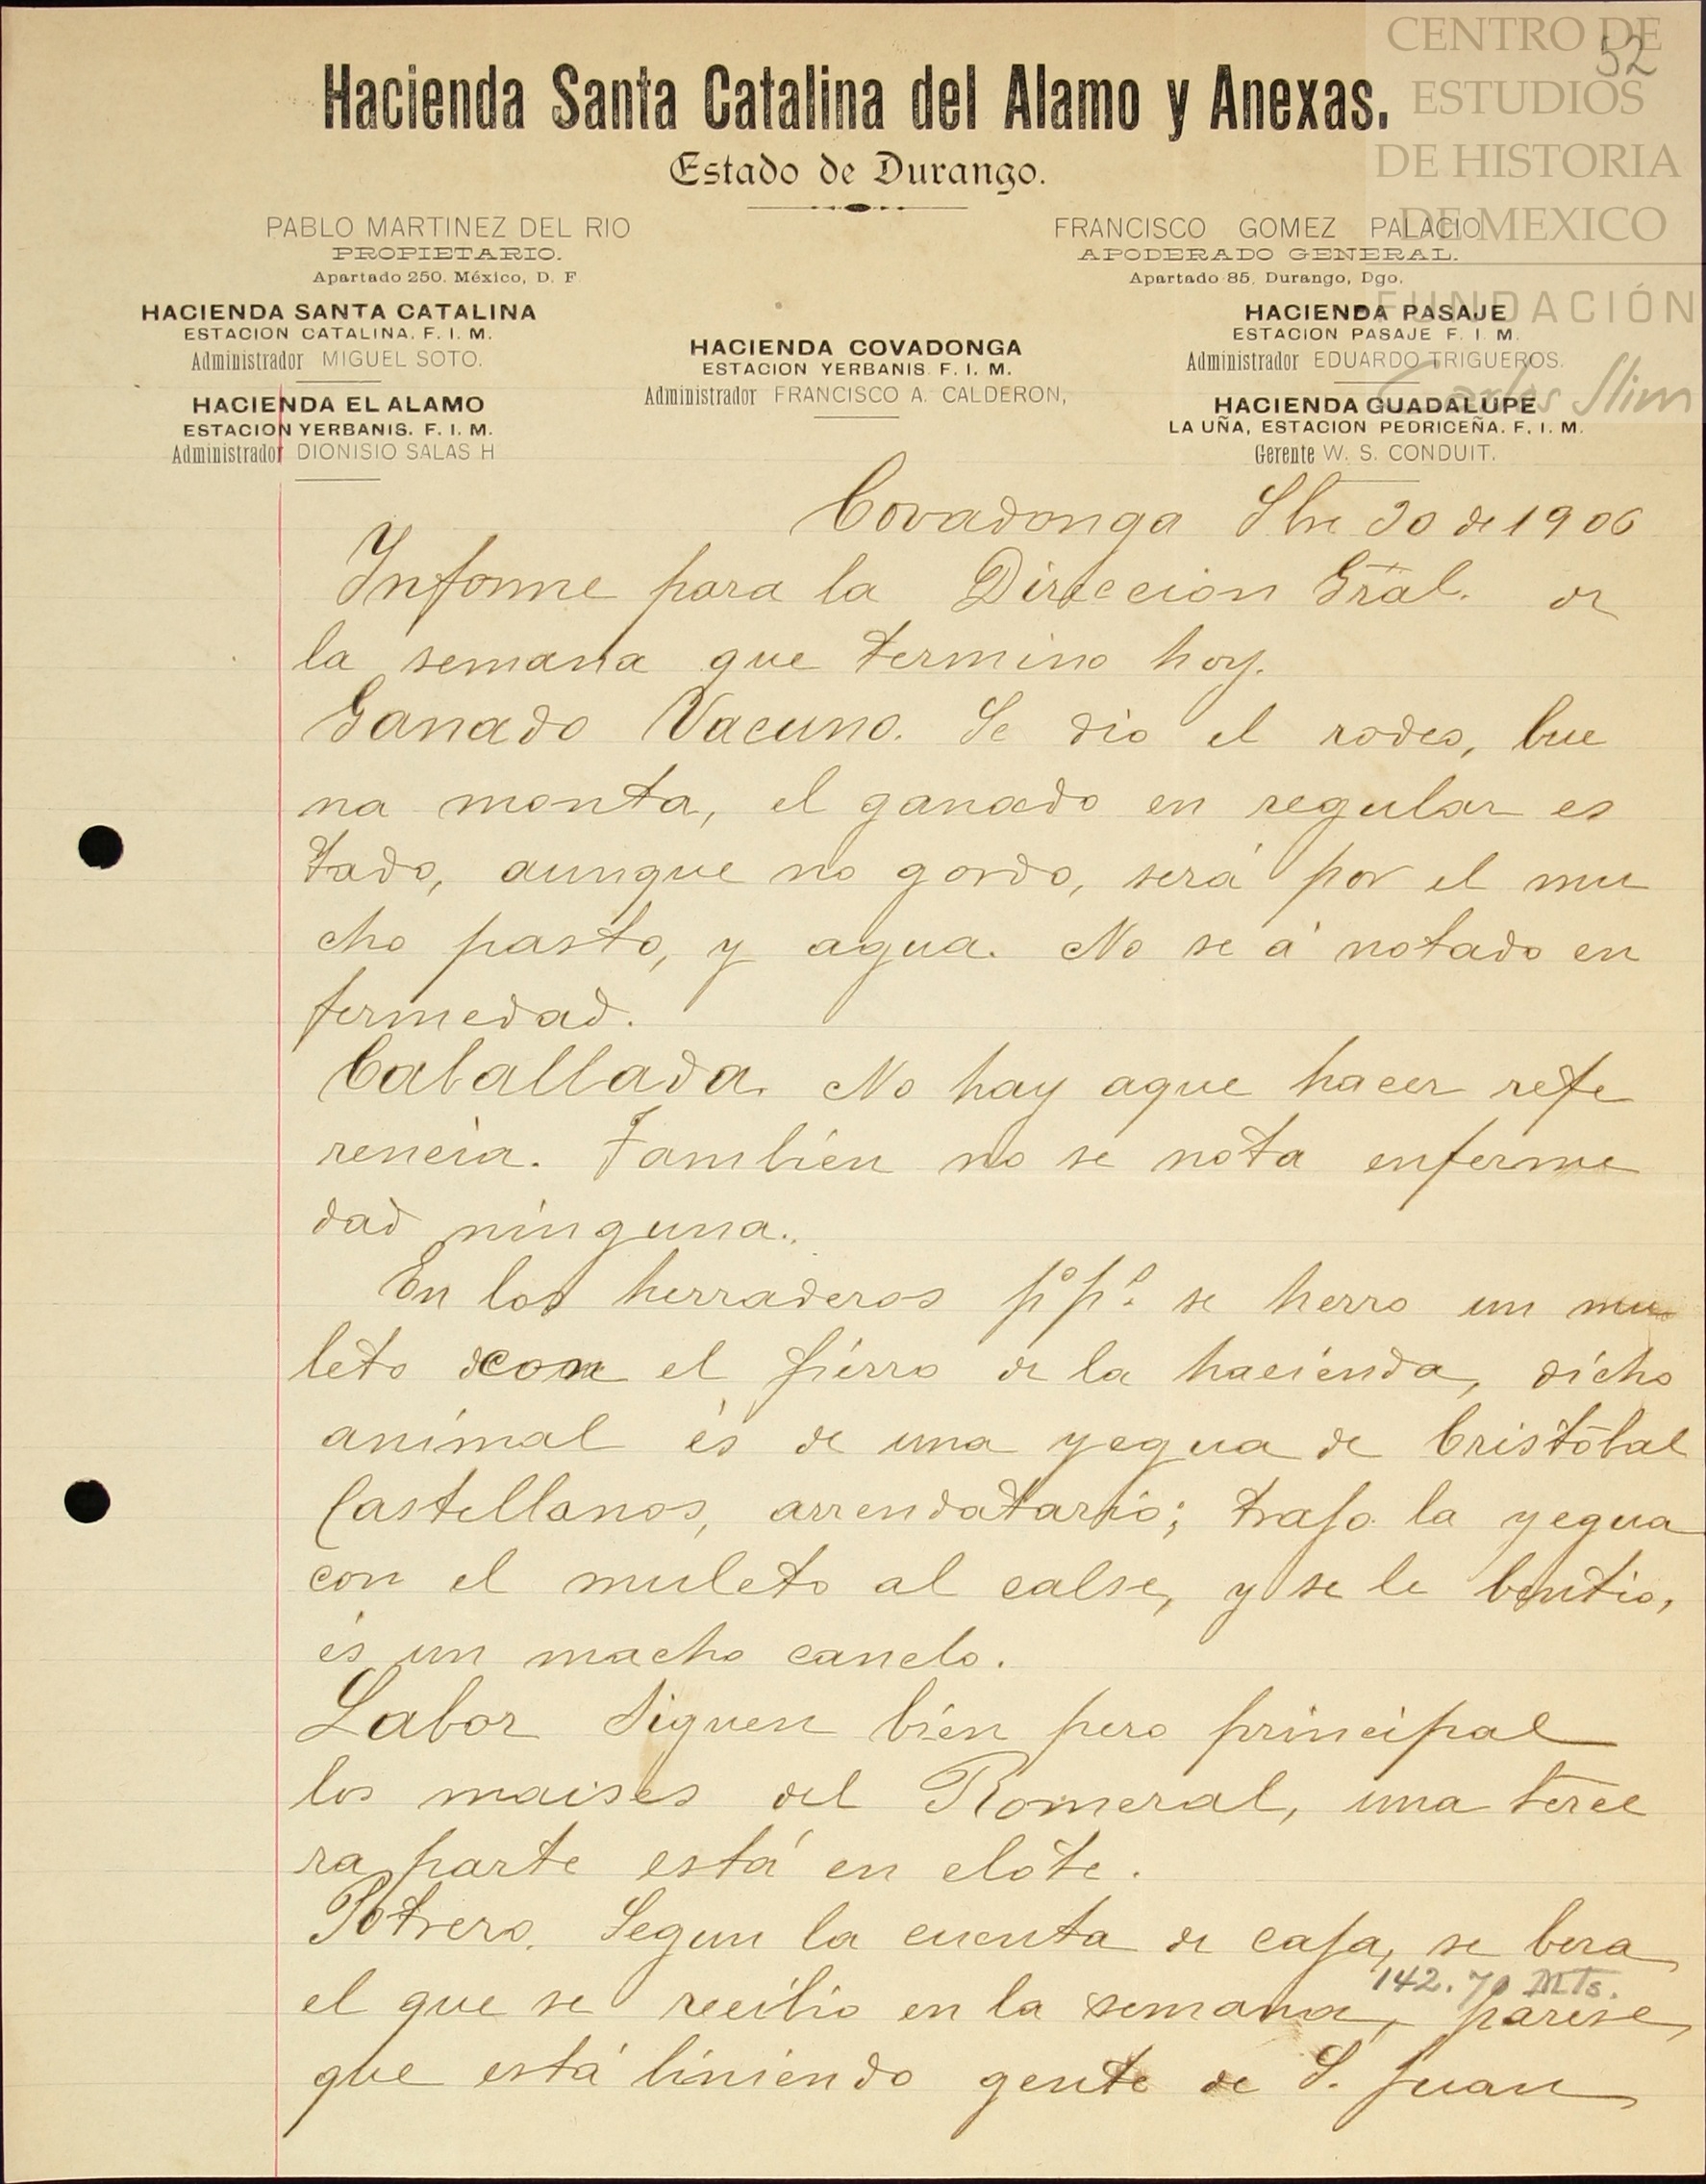 CENTRO DE
ESTUDIOS
DE HISTORIA
DE MEXICO
FUNDACIÓN
Carlos Slim
52
Hacienda Santa Catalina del Alamo y Anexas.
Estado de Durango.
PABLO MARTINEZ DEL RIO
PROPIETARIO.
Apartado 250. México, D. F
FRANCISCO GOMEZ PALACIO
APODERADO GENERAL.
Apartado 85, Durango, Dgo.
HACIENDA SANTA CATALINA
ESTACION CATALINA. F. I. M.
Administrador MIGUEL SOTO.
HACIENDA EL ALAMO
ESTACION YERBANIS. F. I. M.
Administrador DIONISIO SALAS H
HACIENDA COVADONGA
ESTACION YERBANIS F. I. M.
Administrador FRANCISCO A. CALDERON,
HACIENDA PASAJE
ESTACION PASAJE F. I. M.
Administrador EDUARDO TRIGUEROS.
HACIENDA GUADALUPE
LA UÑA, ESTACION PEDRICEÑA. F. I. M.
Gerente W. S. CONDUIT.
Covadonga Sbre 30 de 1906
Informe para la Direccion Gral. de
la semana que termino hoy.
Ganado Vacuno. Se dio el rodeo, bue
na monta, el ganado en regular es
tado, aunque no gordo, será por el mu
cho pasto, y agua. No se á notado en
fermedad.
Caballada. No hay aque hacer refe
rencia. Tambien no se nota enferme
dad ninguna.
En los herraderos pº pº. se herro un mu
leto con el fierro de la hacienda, dicho
animal és de una yegua de Cristóbal
Castellanos, arrendatario; trajo la yegua
con el muleto al calse, y se le bentio,
és un macho canelo.
Labor Siguen bien pero principal
los maises del Romeral, una terce
ra parte está en elote.
Potrero. Segun la cuenta de caja, se bera
142.70 MTs.
el que se recibio en la semana, parese
que está biniendo gente de S. Juan